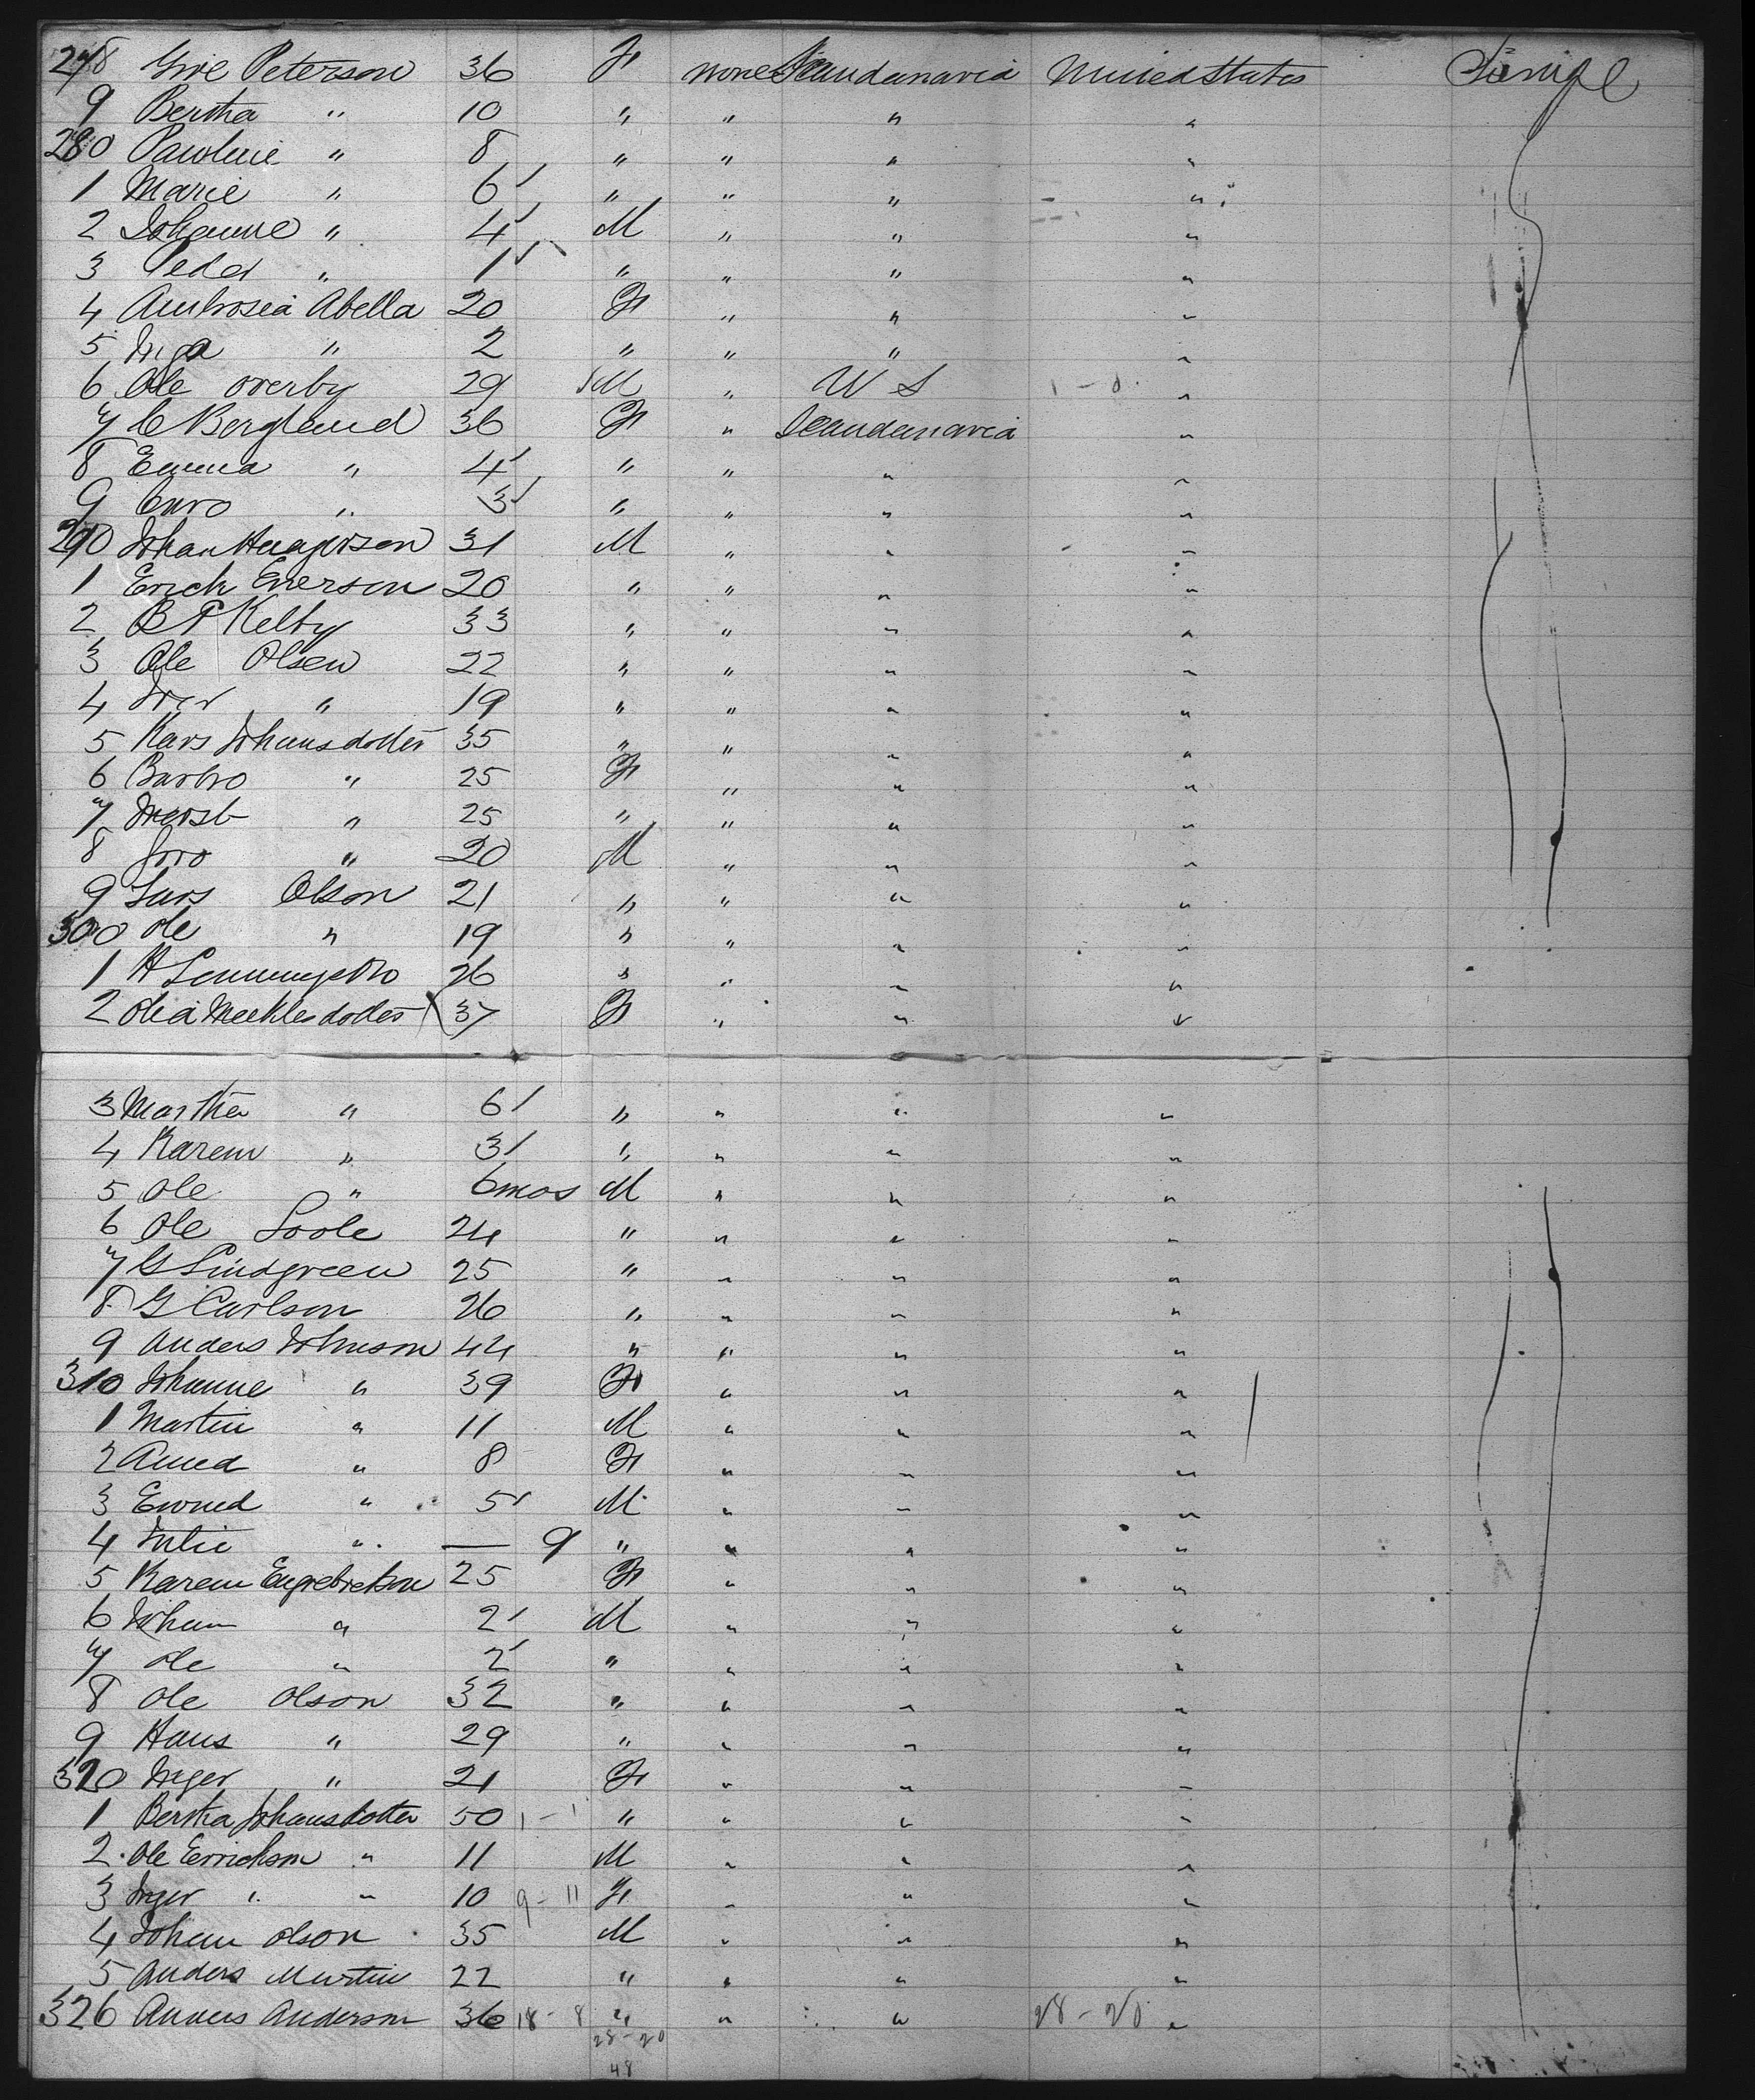 278 Give Peterson 36 F none Scandanavia United States
9 Bertha " 10 " " " "
280 Pauline " 8 " " " "
1 Marie " 6 " " " "
2 Johanne " 4 M " " "
3 Peder " 1 " " " "
4 Ambrosia Abella 20 F " " "
5 Inga " 2 " " " "
6 Ole Overby 29 M " U S "
7 C Bergland 36 F " Scandanavia "
8 Emma " 4 " " " "
9 Curo " 3 " " " "
290 Johan 31 M " " "
1 Erick Enerson 20 " " " "
2 B P Kelby 33 " " " "
3 Ole Olsen 22 " " " "
4 Iver " 19 " " " "
5 Kars Johansdotter 35 " " " "
6 Barbro " 25 F " " "
7 " 25 " " " "
8 Joro " 20 M " " "
9 Lars Olson 21 " " " "
300 Ole " 19 " " " "
1 H 26 " " " "
2 Olia 37 F " " "
3 Martha " 6 " " " "
4 Karem " 3 " " " "
5 Ole " 6 mos M " " "
6 Ole Soole 24 " " " "
7 G Lindgreen 25 " " " "
8 G Carlson 26 " " " "
9 Anders Johnson 44 " " " "
310 Johanne " 39 F " " "
1 Martin " 11 M " " "
2 Anna " 8 F " " "
3 " 5 M " " "
4 Julie " — 9 " " " "
5 Karem Engebretson 25 F " " "
6 Johan " 2 M " " "
7 Ole " 2 " " " "
8 Ole Olson 32 " " " "
9 Hans " 29 " " " "
320 Inger " 21 F " " "
1 Bertha Johansdotter 50 1 - 1 " " " "
2 Ole Errickson " 11 M " " "
3 Inger " " 10 9 - 11 F " " "
4 Johan Olson 35 M " " "
5 Anders Martin 22 " " " "
326 Anders Anderson 36 18 - 8 " " " 28 - 20 "
28 - 20
48